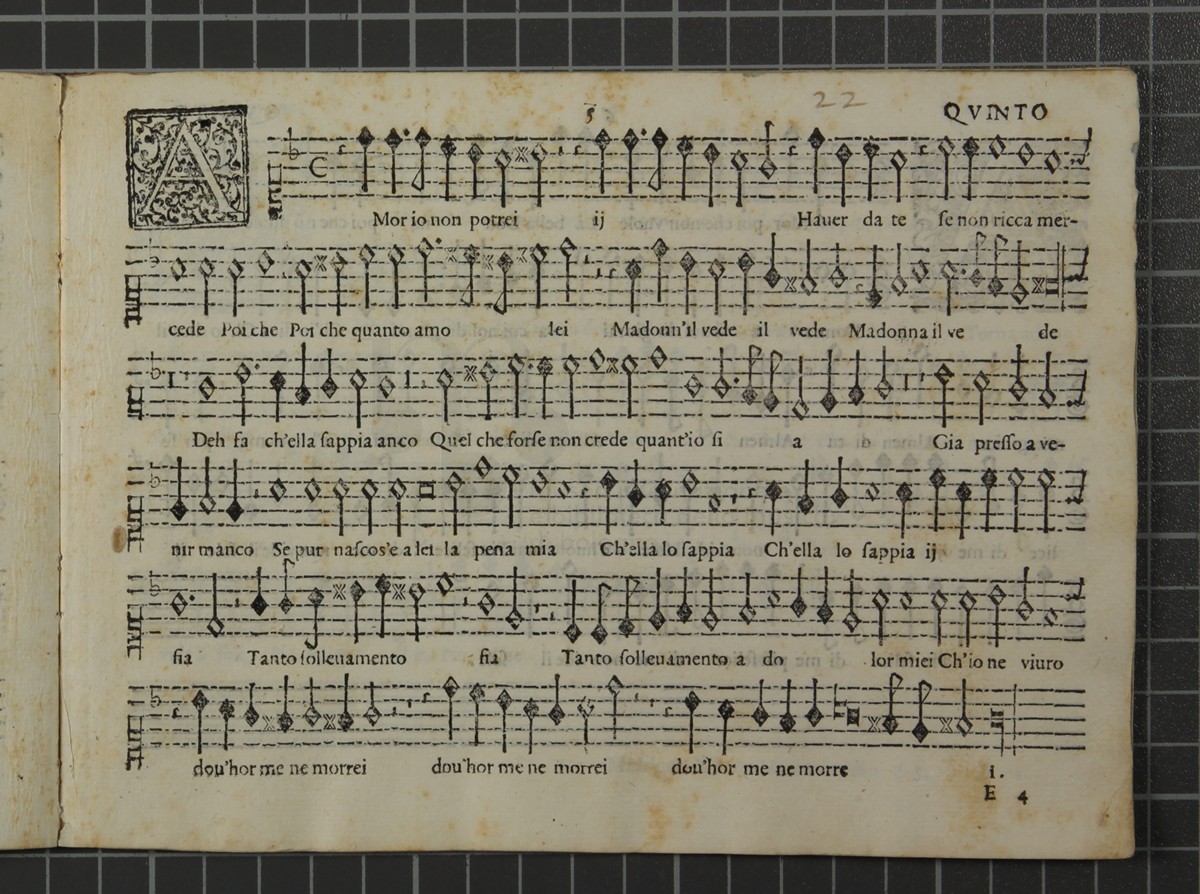 5 22 QVINTO
A
Mor io non potrei ij Hauer da te se non ricca mer-
cede Poi che Poi che quanto amo lei Madonn'il vede il vede Madonna il ve de
Deh fa ch'ella sappia anco Quel che forse non crede quant'io si a Gia presso a ve-
nir manco Se pur nascos'e a lei la pena mia Ch'ella lo sappia Ch'ella lo sappia ij
fia Tanto solleuamento fia Tanto solleuamento a do lor miei Ch'io ne viuro
dou'hor me ne morrei dou'hor me ne morrei dou'hor me ne morre i.
E 4